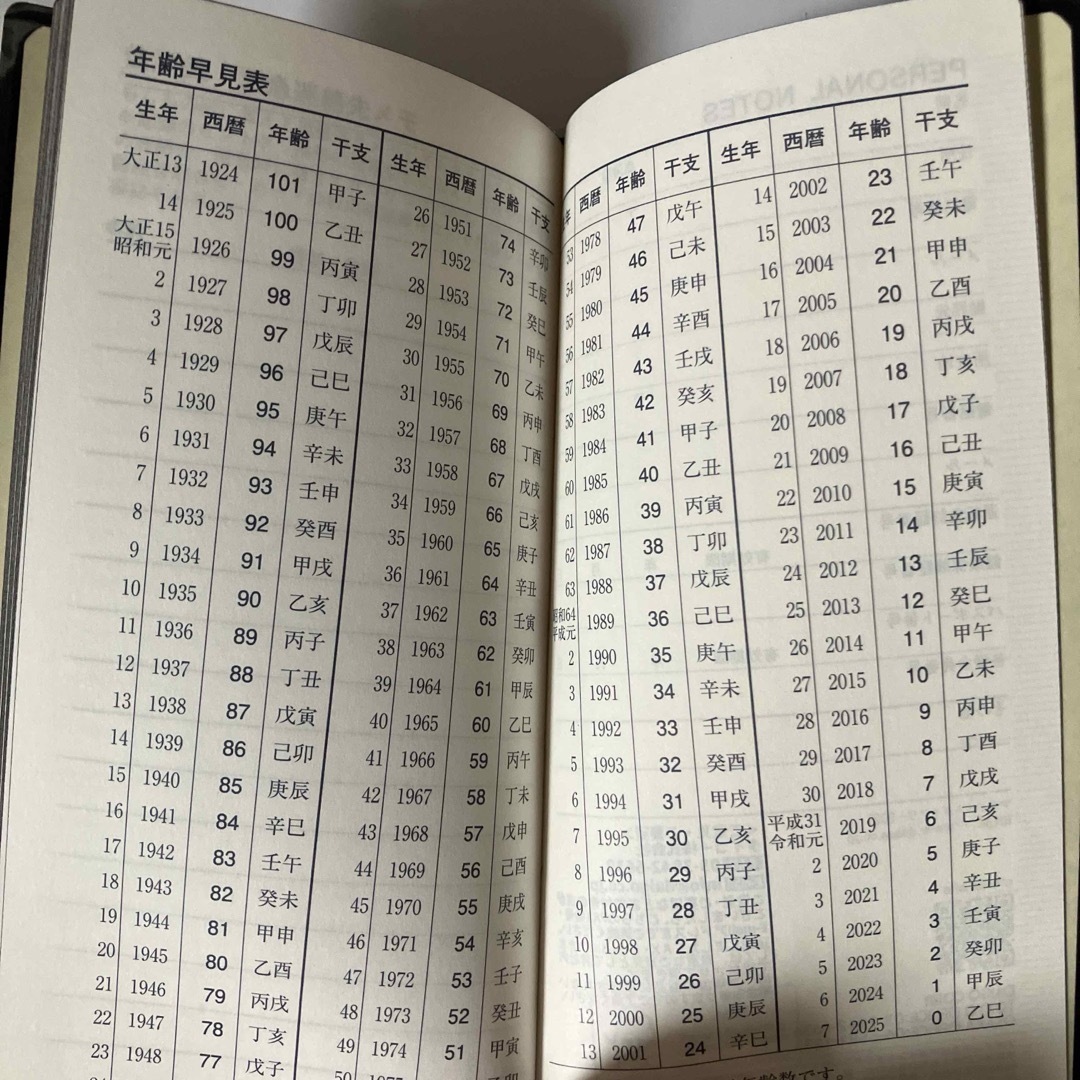 年齢早見表
生年 西暦 年齢 干支
大正13 1924 101 甲子
14 1925 100 乙丑
大正15
昭和元 1926 99 丙寅
2 1927 98 丁卯
3 1928 97 戊辰
4 1929 96 己巳
5 1930 95 庚午
6 1931 94 辛未
7 1932 93 壬申
8 1933 92 癸酉
9 1934 91 甲戌
10 1935 90 乙亥
11 1936 89 丙子
12 1937 88 丁丑
13 1938 87 戊寅
14 1939 86 己卯
15 1940 85 庚辰
16 1941 84 辛巳
17 1942 83 壬午
18 1943 82 癸未
19 1944 81 甲申
20 1945 80 乙酉
21 1946 79 丙戌
22 1947 78 丁亥
23 1948 77 戊子
生年 西暦 年齢 干支
26 1951 74 辛卯
27 1952 73 壬辰
28 1953 72 癸巳
29 1954 71 甲午
30 1955 70 乙未
31 1956 69 丙申
32 1957 68 丁酉
33 1958 67 戊戌
34 1959 66 己亥
35 1960 65 庚子
36 1961 64 辛丑
37 1962 63 壬寅
38 1963 62 癸卯
39 1964 61 甲辰
40 1965 60 乙巳
41 1966 59 丙午
42 1967 58 丁未
43 1968 57 戊申
44 1969 56 己酉
45 1970 55 庚戌
46 1971 54 辛亥
47 1972 53 壬子
48 1973 52 癸丑
49 1974 51 甲寅
50 1975
年 西暦 年齢 干支
53 1978 47 戊午
54 1979 46 己未
55 1980 45 庚申
56 1981 44 辛酉
57 1982 43 壬戌
58 1983 42 癸亥
59 1984 41 甲子
60 1985 40 乙丑
61 1986 39 丙寅
62 1987 38 丁卯
63 1988 37 戊辰
昭和64
平成元 1989 36 己巳
2 1990 35 庚午
3 1991 34 辛未
4 1992 33 壬申
5 1993 32 癸酉
6 1994 31 甲戌
7 1995 30 乙亥
8 1996 29 丙子
9 1997 28 丁丑
10 1998 27 戊寅
11 1999 26 己卯
12 2000 25 庚辰
13 2001 24 辛巳
生年 西暦 年齢 干支
14 2002 23 壬午
15 2003 22 癸未
16 2004 21 甲申
17 2005 20 乙酉
18 2006 19 丙戌
19 2007 18 丁亥
20 2008 17 戊子
21 2009 16 己丑
22 2010 15 庚寅
23 2011 14 辛卯
24 2012 13 壬辰
25 2013 12 癸巳
26 2014 11 甲午
27 2015 10 乙未
28 2016 9 丙申
29 2017 8 丁酉
30 2018 7 戊戌
平成31
令和元 2019 6 己亥
2 2020 5 庚子
3 2021 4 辛丑
4 2022 3 壬寅
5 2023 2 癸卯
6 2024 1 甲辰
7 2025 0 乙巳
年齢数です。